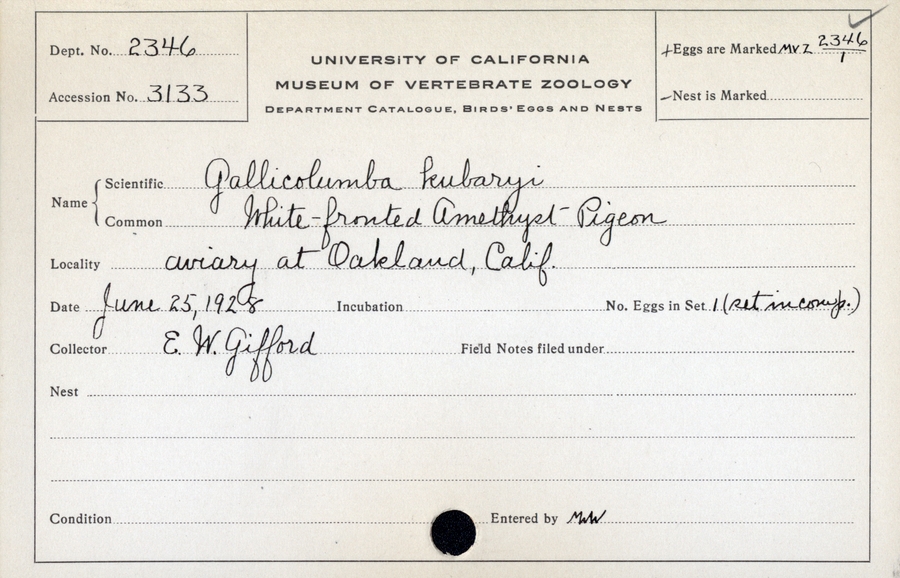 Dept. No. 2346
Accession No. 3133
UNIVERSITY OF CALIFORNIA
MUSEUM OF VERTEBRATE ZOOLOGY
DEPARTMENT CATALOGUE, BIRDS' EGGS AND NESTS
+Eggs are Marked MVZ 2346/1
–Nest is Marked
Name
Scientific Gallicolumba kubaryi
Common White-fronted Amethyst-Pigeon
Locality aviary at Oakland, Calif.
Date June 25, 1928 Incubation No. Eggs in Set 1 (set incomp.)
Collector E. W. Gifford Field Notes filed under
Nest
Condition Entered by